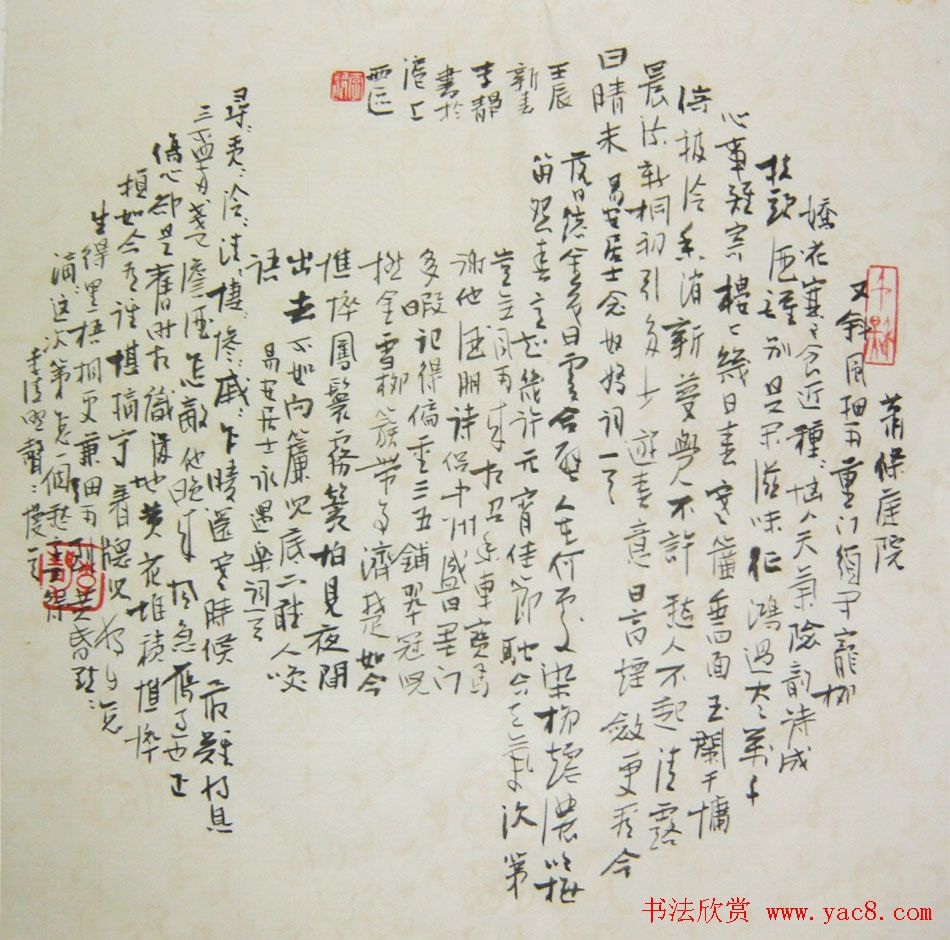 萧條庭院
又斜風細雨重门須闭寵柳
嬌花寒食近種種惱人天氣險韵詩成
扶頭酒醒别是闲滋味征鴻過尽萬千
心事難寄樓上幾日春寒簾垂四面玉闌干慵
倚被冷香消新夢覺不許愁人不起清露
晨流新桐初引多少遊春意日高煙斂更看今
日晴未易安居士念奴嬌詞一首
落日熔金暮日雲合璧人在何處染柳煙濃吹梅
笛怨春意知幾許元宵佳節融合天氣次第
豈無風雨來相召香車寶馬
謝他酒朋詩侣中州盛日闺门
多暇記得偏重三五鋪翠冠兒
撚金雪柳簇带争濟楚如今
憔悴鳳鬟霧鬓怕見夜間
出去不如向簾兒底下聽人笑
語
易安居士永遇樂詞一首
尋尋覓覓冷冷清清悽悽慘慘戚戚乍暖還寒時候最難将息
三杯兩盞淡酒怎敵他晚来風急雁過也正
傷心卻是舊時相識满地黄花堆積憔悴
損如今有誰堪摘守着牕兒獨自怎
生得黑梧桐更兼細雨到黄昏點點
滴滴這次第怎一個愁字了得
李清照聲聲慢一首
壬辰
新春
李靜
書於
滬上
西區
书法欣赏 www.yac8.com